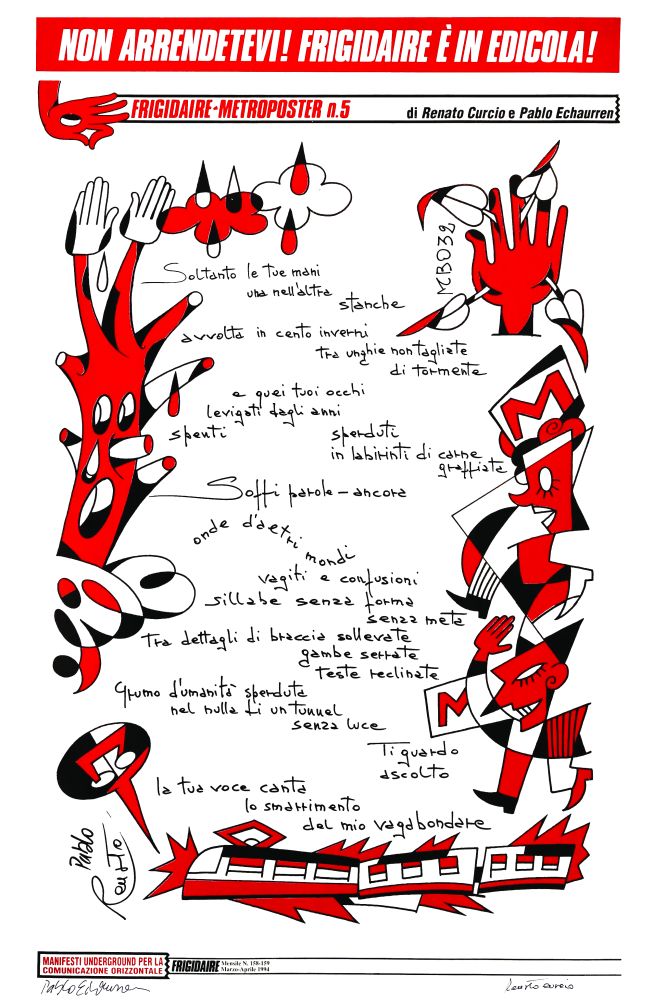 NON ARRENDETEVI! FRIGIDAIRE È IN EDICOLA!
FRIGIDAIRE-METROPOSTER n.5
di Renato Curcio e Pablo Echaurren
MBO32
Soltanto le tue mani
una nell'altra
stanche
avvolta in cento inverni
tra unghie non tagliate
di tormente
e quei tuoi occhi
levigati dagli anni
spenti
sperduti
in labirinti di carne
graffiata
M
Soffi parole – ancora
onde d'altri mondi
vagiti e confusioni
sillabe senza forma
senza meta
Tra dettagli di braccia sollevate
gambe serrate
teste reclinate
Grumo d'umanità sperduta
nel nulla di un tunnel
senza luce
M
Ti guardo
ascolto
la tua voce canta
lo smarrimento
del mio vagabondare
Pablo
Renato
MANIFESTI UNDERGROUND PER LA
COMUNICAZIONE ORIZZONTALE
FRIGIDAIRE
Mensile N. 158-159
Marzo-Aprile 1994
Pablo Echaurren
Renato Curcio